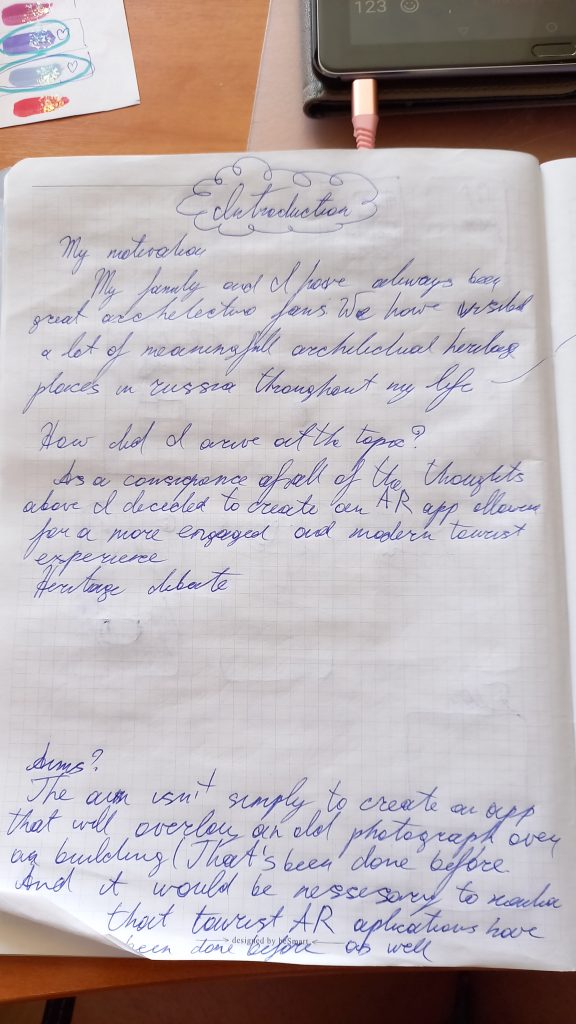 123
Introduction
My motivation
My family and I have always been
great architecture fans. We have visited
a lot of meaningfull architectual heritage
places in russia throughout my life
How did I arive at the topic?
As a consiqpance of all of the thoughts
above I decided to create an AR app allowing
for a more engaged and modern tourist
experience
Heritage debate
Aims?
The aim isn't simply to create an app
that will overlay an old photograph over
a building (That's been done before.
And it would be nessesary to
that tourist AR aplications have
been done before as well
designed by beSmart